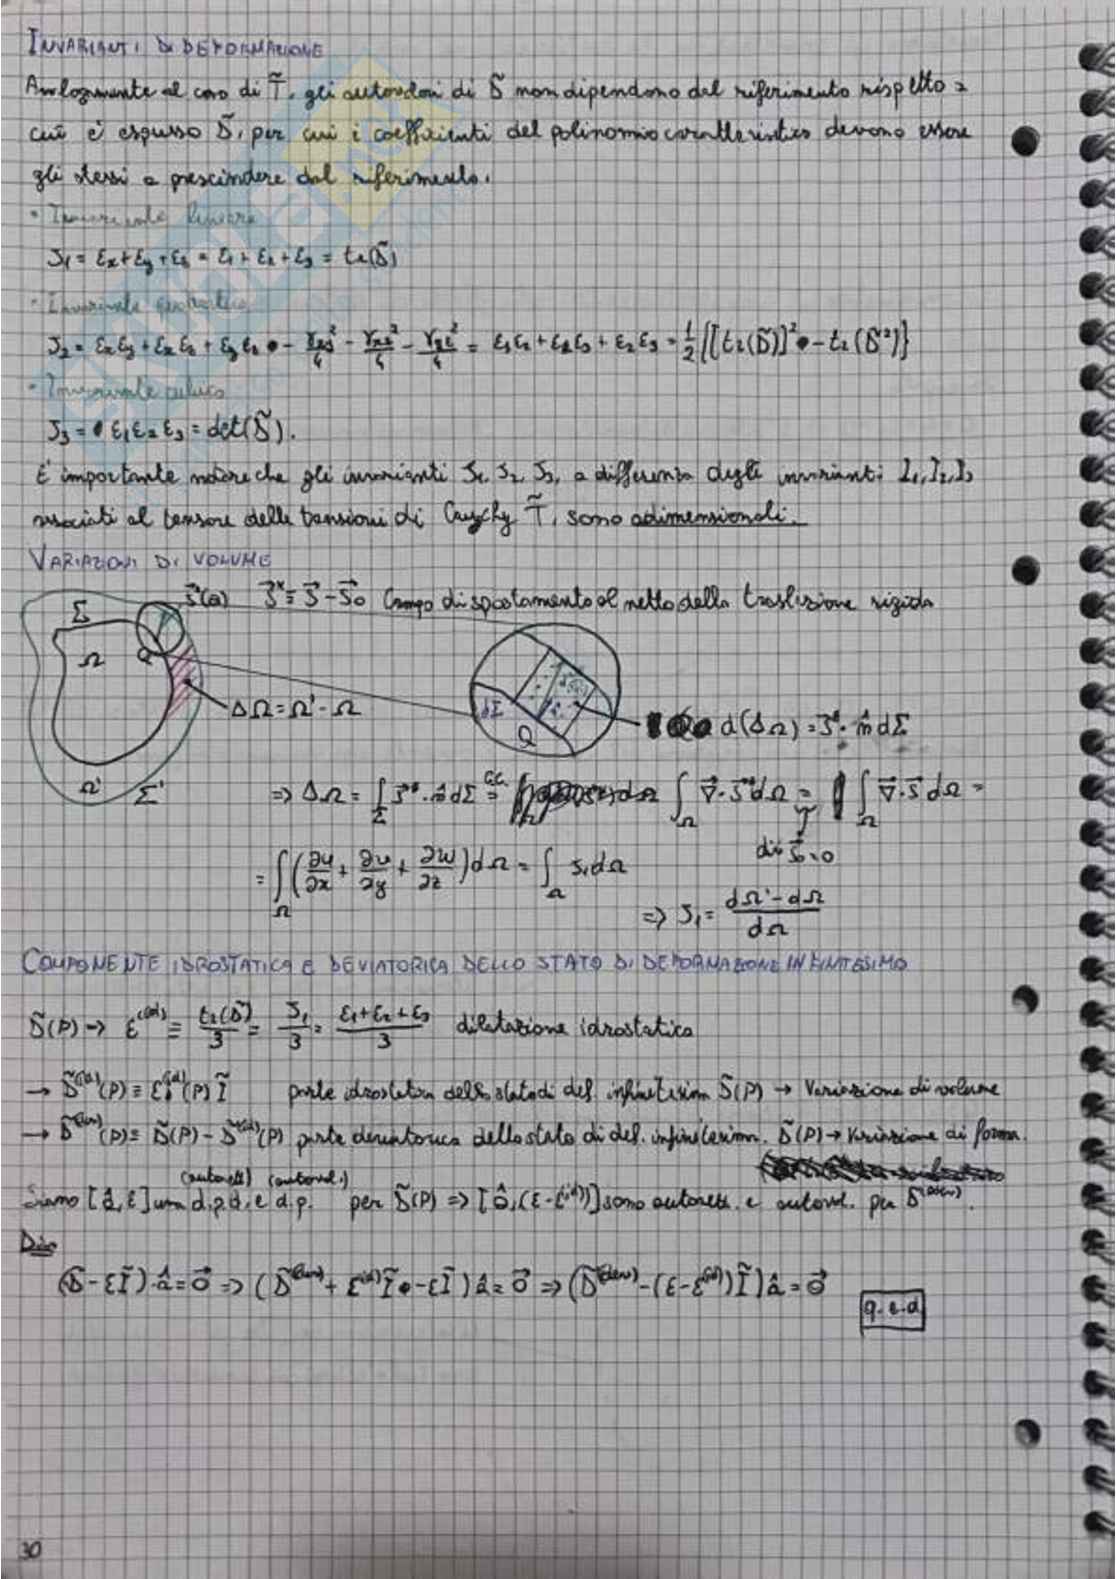 INVARIANTI DI DEFORMAZIONE
Analogamente al caso di T̃, gli autovalori di D̃ non dipendono dal riferimento rispetto a
cui è espresso D̃, per cui i coefficienti del polinomio caratteristico devono essere
gli stessi a prescindere dal riferimento.
• Invariante lineare
J₁ = εx + εy + εz = ε₁ + ε₂ + ε₃ = tr(D̃)
• Invariante quadratico
J₂ = εxεy + εxεz + εyεz - γxy²/4 - γxz²/4 - γyz²/4 = ε₁ε₂ + ε₁ε₃ + ε₂ε₃ = 1/2 {[tr(D̃)]² - tr(D̃²)}
• Invariante cubico
J₃ = ε₁ε₂ε₃ = det(D̃).
È importante notare che gli invarianti J₁, J₂, J₃, a differenza degli invarianti I₁, I₂, I₃
associati al tensore delle tensioni di Cauchy T̃, sono adimensionali.
VARIAZIONI DI VOLUME
Σ s⃗*(Q) s⃗* ≡ s⃗ - s⃗₀ Campo di spostamento al netto della traslazione rigida
Ω Q
ΔΩ = Ω' - Ω dΣ Q d(ΔΩ) = s⃗* · n̂ dΣ
Ω' Σ' => ΔΩ = ∫Σ s⃗* · n̂ dΣ = ∫Ω ∇⃗ · s⃗* dΩ = ∫Ω ∇⃗ · s⃗ dΩ =
div s⃗₀ = 0
= ∫Ω (∂u/∂x + ∂v/∂y + ∂w/∂z) dΩ = ∫Ω J₁ dΩ
=> J₁ = (dΩ' - dΩ)/dΩ
COMPONENTE IDROSTATICA E DEVIATORICA DELLO STATO DI DEFORMAZIONE INFINITESIMO
D̃(P) → ε^(id) ≡ tr(D̃)/3 = J₁/3 = (ε₁ + ε₂ + ε₃)/3 dilatazione idrostatica
→ D̃^(id)(P) ≡ ε^(id)(P) Ĩ parte idrostatica dello stato di def. infinitesima D̃(P) → Variazione di volume
→ D̃^(dev)(P) ≡ D̃(P) - D̃^(id)(P) parte deviatorica dello stato di def. infinitesima. D̃(P) → Variazione di forma.
(autovett) (autoval.)
Siano [â, ε] una d.p.d. e d.p. per D̃(P) => [â, (ε - ε^(id))] sono autovett. e autoval. per D̃^(dev).
Dim
(D̃ - εĨ) · â = 0⃗ => (D̃^(dev) + ε^(id)Ĩ - εĨ) â = 0⃗ => (D̃^(dev) - (ε - ε^(id))Ĩ) â = 0⃗
q.e.d
30